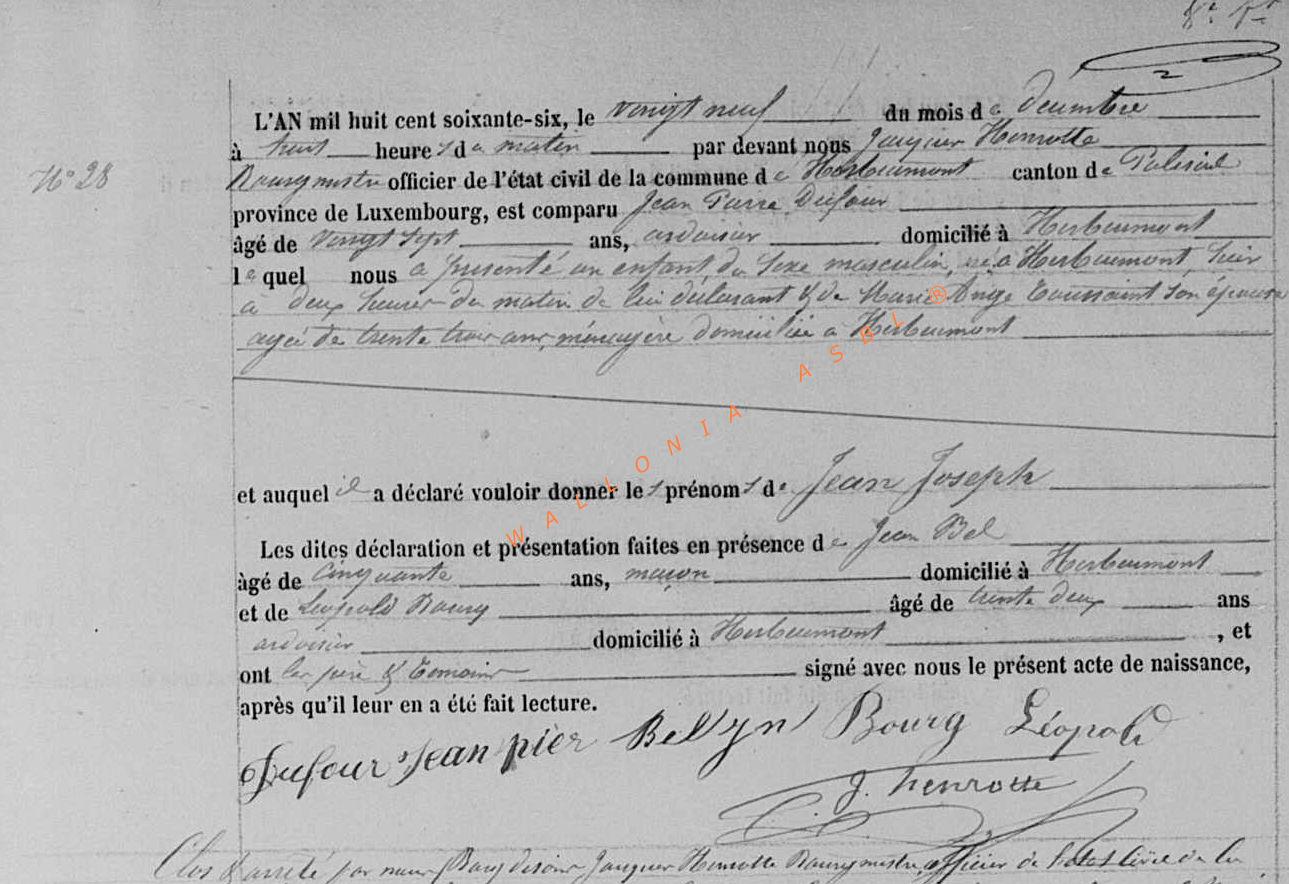 N° 28
L'AN mil huit cent soixante-six, le vingt neuf du mois de décembre
à huit heures du matin par devant nous Jacques Henrotte
Bourgmestre officier de l'état civil de la commune de Herbeumont canton de Paliseul
province de Luxembourg, est comparu Jean Pierre Dufour
âgé de vingt sept ans, ardoisier domicilié à Herbeumont
lequel nous a présenté un enfant du sexe masculin, né à Herbeumont, hier
à deux heures du matin de lui déclarant & de Marie Ange Toussaint son épouse
agée de trente trois ans, ménagère domiciliée à Herbeumont
et auquel il a déclaré vouloir donner les prénoms de Jean Joseph
Les dites déclaration et présentation faites en présence de Jean Bel
âgé de cinquante ans, maçon domicilié à Herbeumont
et de Léopold Bourg âgé de trente deux ans
ardoisier domicilié à Herbeumont, et
ont les père & témoins signé avec nous le présent acte de naissance,
après qu'il leur en a été fait lecture.
Dufour Jean pier Bel Jn Bourg Léopold
J. henrotte
Clos & arrêté par nous Jacques Henrotte Bourgmestre, officier de l'état civil de la
WALLONIA ASBL ®